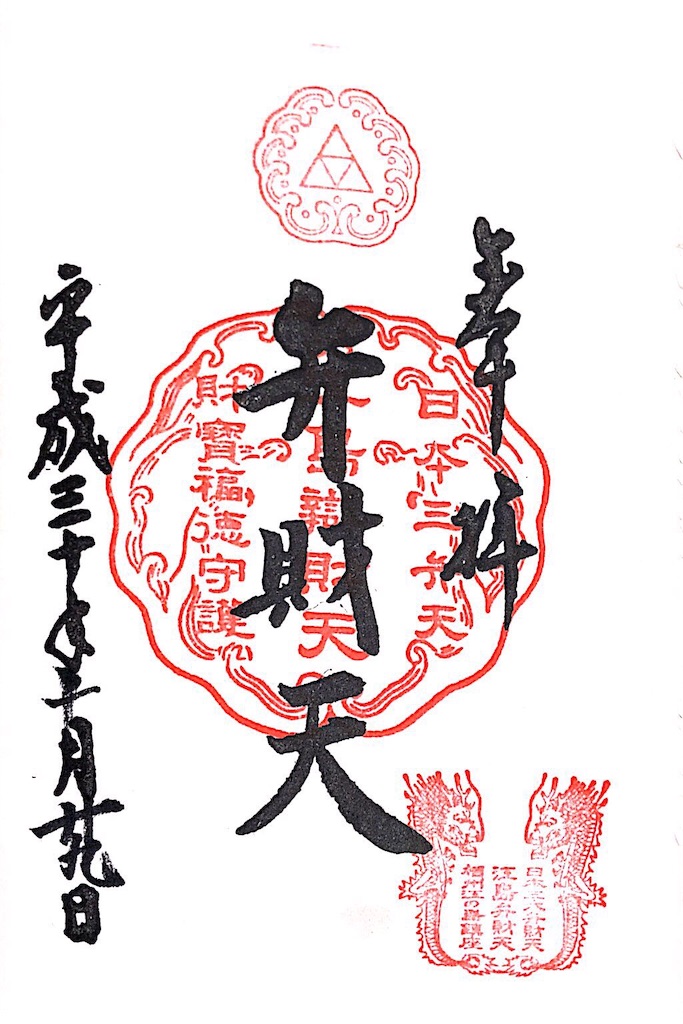 奉拝
日本三弁天
江島辨財天
財寶福徳守護
弁財天
平成三十年二月廿九日
日本三大弁財天
江島弁財天